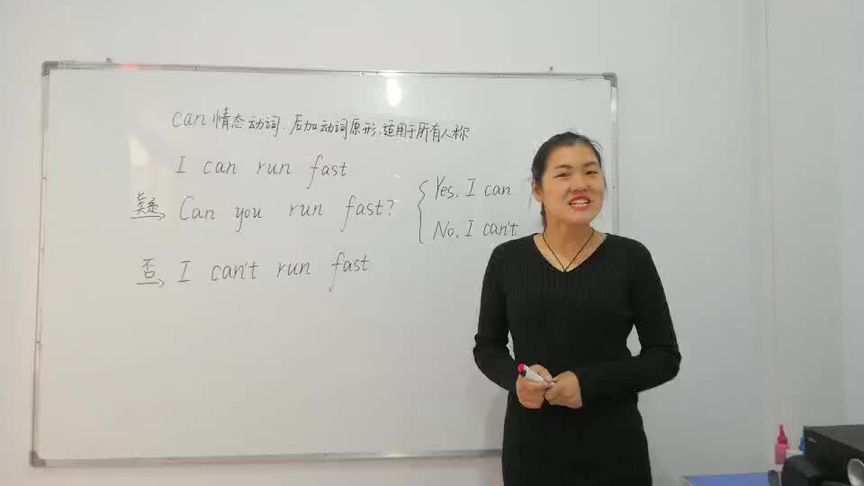 can 情态动词.后加动词原形,适用于所有人称
I can run fast
疑 Can you run fast?
Yes, I can
No, I can't
否 I can't run fast